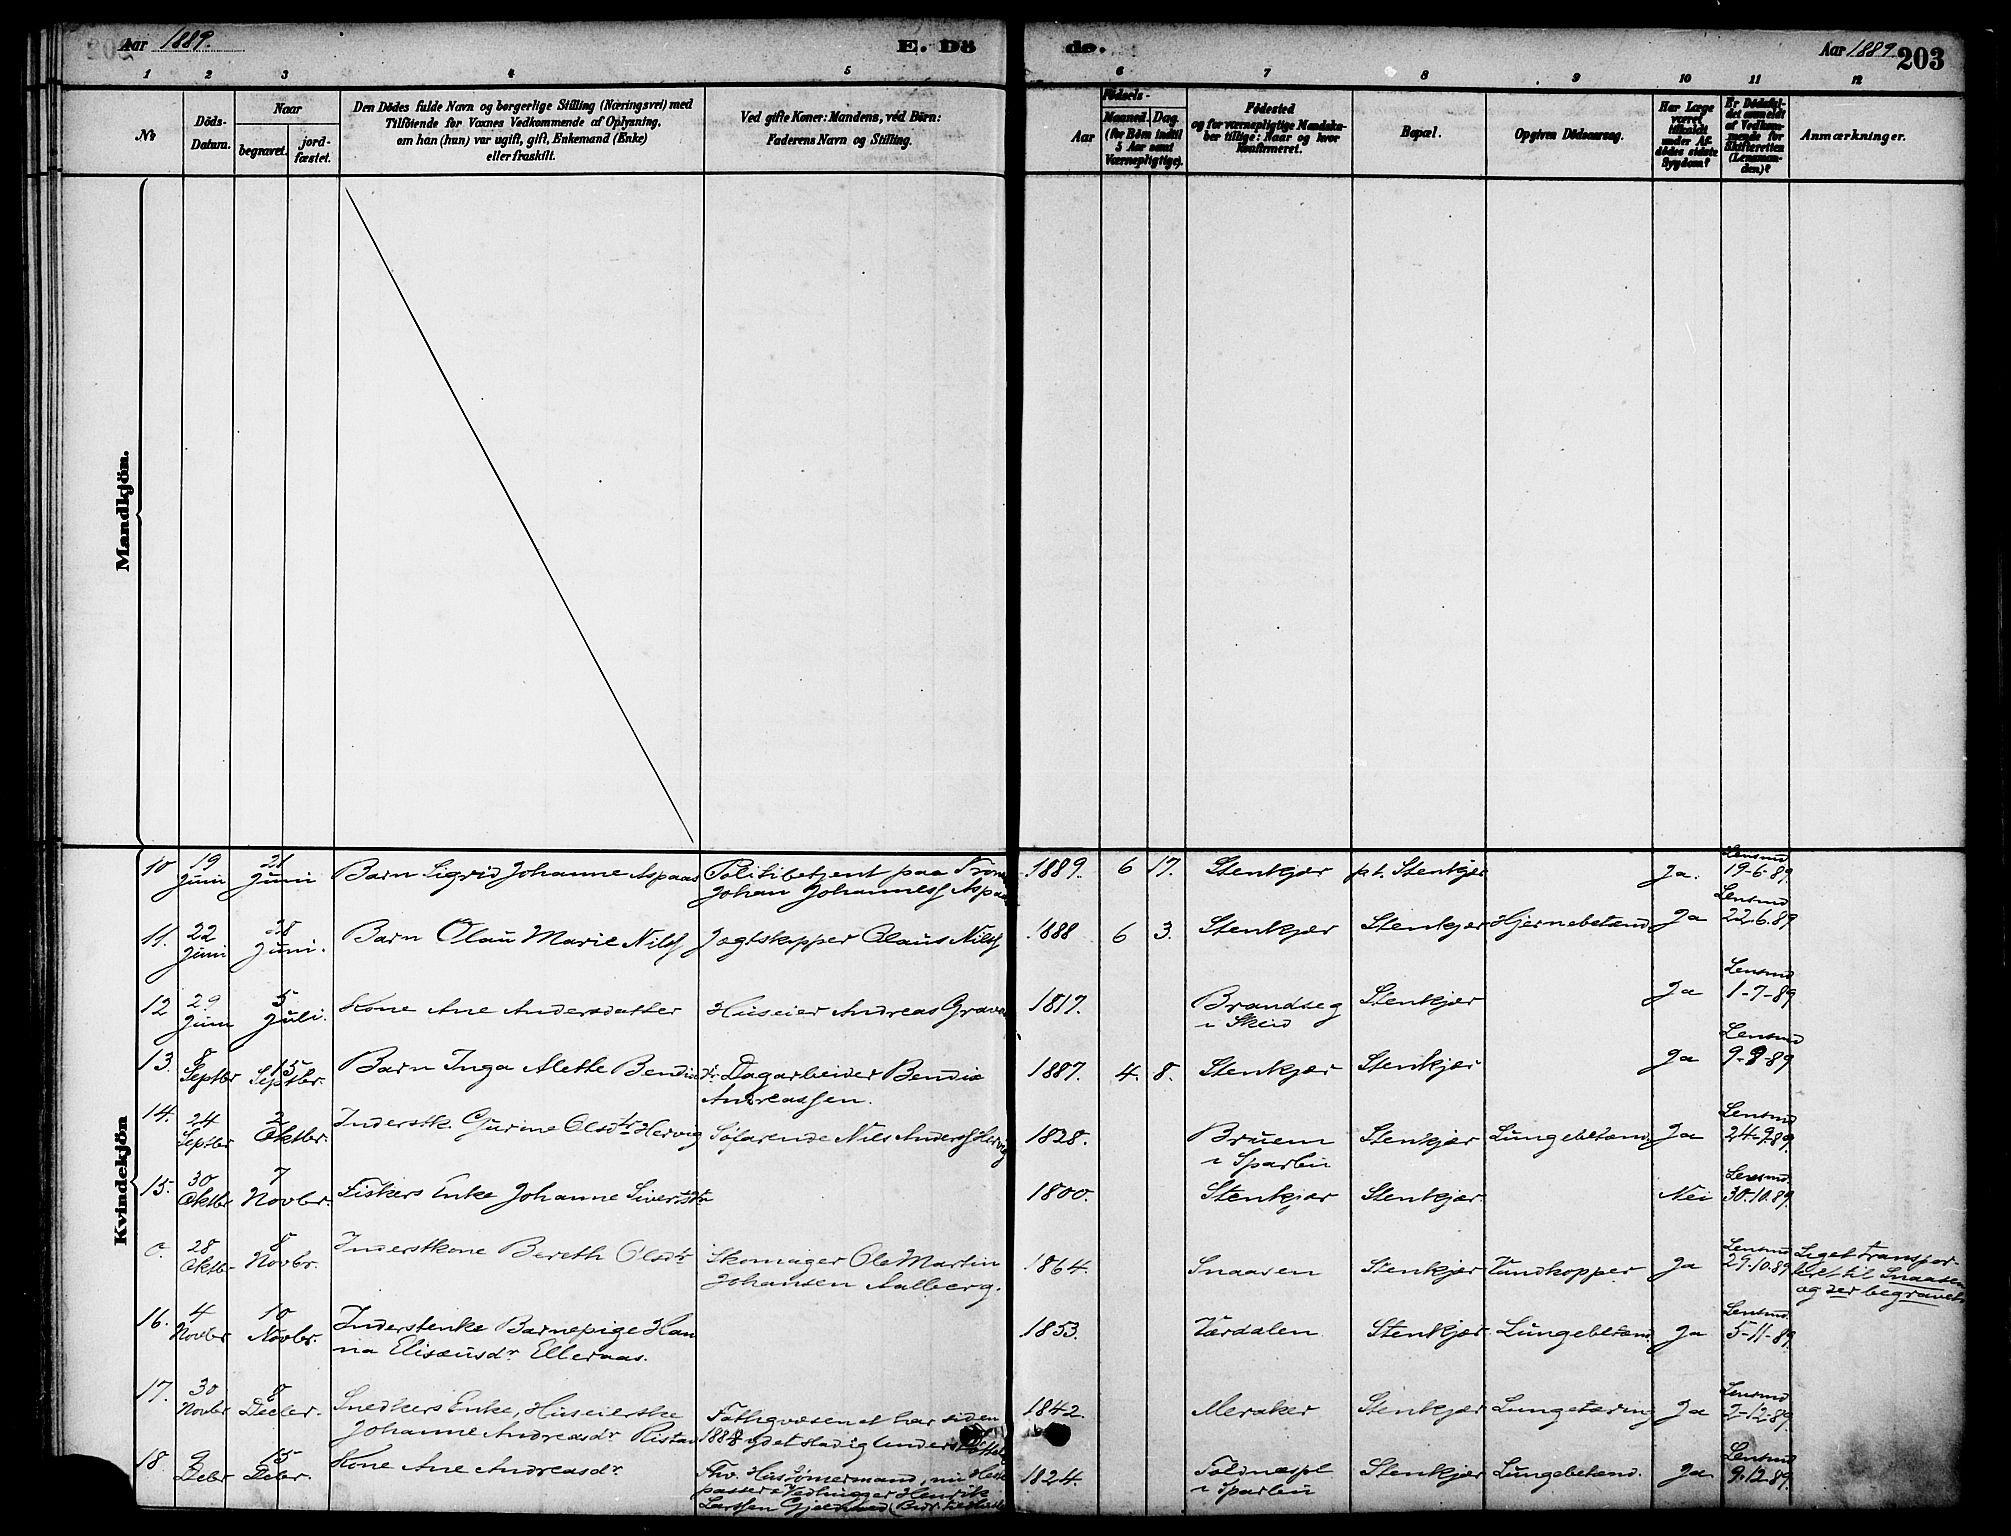 Aar 1889.
E. Dö
de.
Aar 1889.
203
1 2 3 4 5 6 7 8 9 10 11 12
No
Döds-Datum.
Naar
begravet.
jord-fæstet.
Den Dödes fulde Navn og borgerlige Stilling (Næringsvei) med
Tilföiende for Voxnes Vedkommende af Oplysning,
om han (hun) var ugift, gift, Enkemand (Enke)
eller fraskilt.
Ved gifte Koner: Mandens, ved Börn:
Faderens Navn og Stilling.
Födsels-
Aar
Maaned. Dag.
(for Börn indtil
5 Aar samt
Værnepligtige).
Födested
og for værnepligtige Mandska-
ber tillige: Naar og hvor
Konfirmeret.
Bopæl.
Opgiven Dödsaarsag.
Har Læge
været
tilkaldt
under Af-
dödes sidste
Sygdom?
Er Dödsfal-
det anmeldt
af Vedkom-
mende for
Skifteretten
(Lensman-
den)?
Anmærkninger.
Mandkjön.
Kvindekjön
10 19 Juni 21 Juni Barn Sigrid Johanne Aspaas Politibetjent paa
Johan Johanness 1889. 6 17. Stenkjær p.t. Stenkjær Ja. Lensmd 19-6-89.
11. 22 Juni 28 Juni. Barn Olau Marie Nilss Jagtskipper Olaus Nilss 1888 6 3. Stenkjær Stenkjær Hjernebetænd Ja Lensmd 22-6-89
12 29 Juni 5 Juli. Kone Ane Andersdatter Huseier Andreas 1817. Brandseg
i Skeid Stenkjær Ja Lensmd 1-7-89
13. 8 Septbr 15 Septbr. Barn Inga Alette Dagarbeider Bendix
Andreassen. 1887. 4. 8. Stenkjær Stenkjær Ja Lensmd 9-9-89
14. 24 Septbr 2 Oktbr. Inderstk. Gurine Olsdtr Hervig Söfarende Nils Anderss Hervig 1828. Bruem
i Sparbu Stenkjær Lungebetænd. Ja Lensmd 24-9-89.
15. 30 Oktbr 7 Novbr. Fiskers Enke Johanne Sivertsdtr 1800. Stenkjær Stenkjær. Nei Lensmd. 30-10-89.
0. 28 Oktbr 8 Novbr. Inderstkone Bereth Olsdtr Skomager Ole Martin
Johansen Aalberg. 1864. Snaasen Stenkjær Vandkopper Ja Lensmd 29-10-89 Liget transpor-
teret til Snaasen
og der begravet.
16. 4 Novbr 10 Novbr. Inderstenke Barnepige Han
na Elisæusdr Elleraas. 1853. Værdalen Stenkjær Lungebetænd Ja Lensmd. 5-11-89.
17. 30 Novbr 8 Decbr. Snedkers Enke, Huseierske
Johanne Andreasdr Fattigvæsenet har siden
1884 ydet stadig 1842. Meraker Stenkjær Lungetæring Ja Lensmd 2-12-89.
18. 9 Debr 15 Debr. Kone Ane Andreasdr Fhv. Hustömermand, nu
passer & Vedhugger Henrik
Larssen 1824. Foldnæspl
i Sparbu Stenkjær Lungebetænd. Ja. Lensmd 9-12-89.